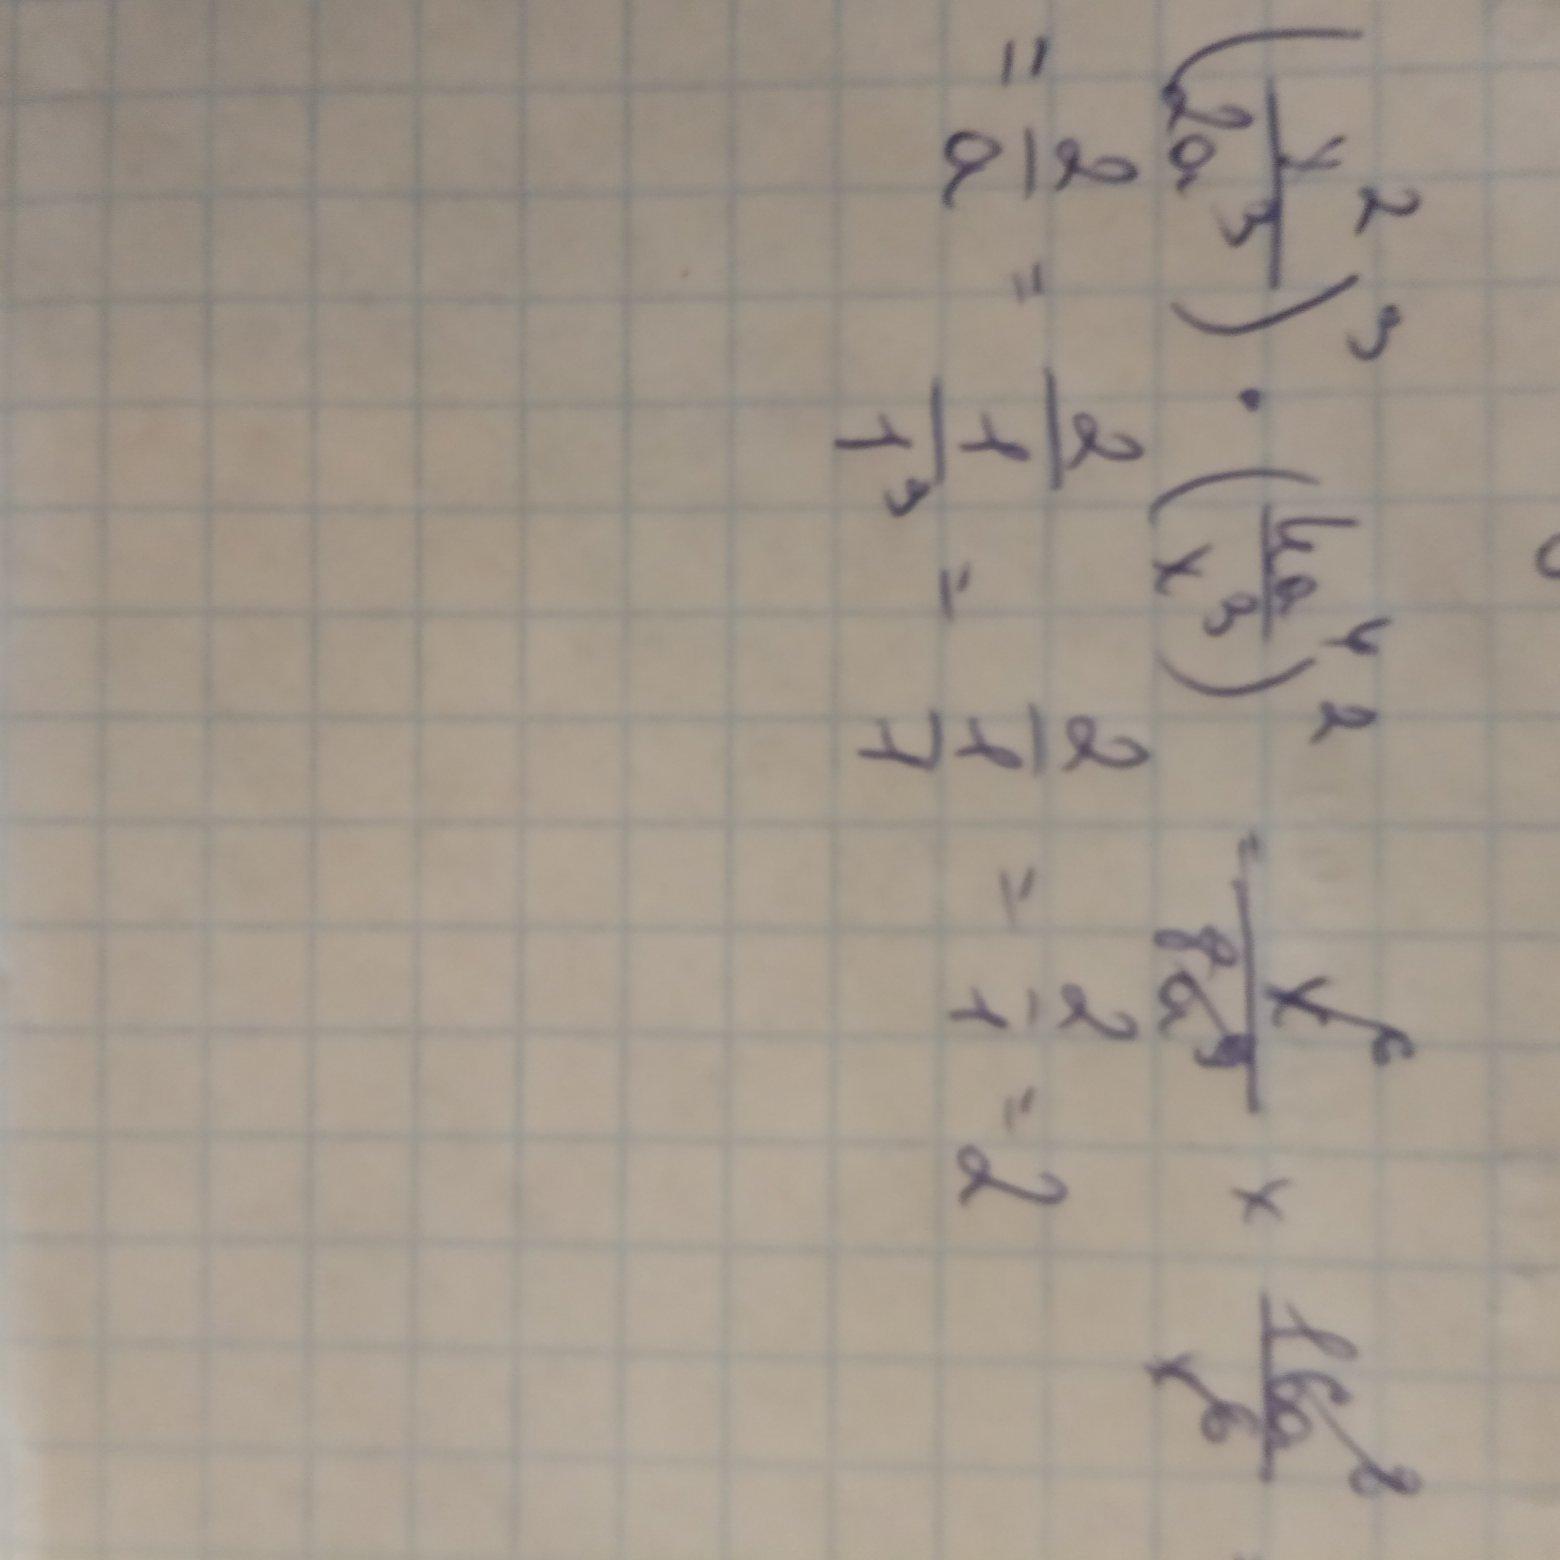 (x²/2a³)³ · (4a⁴/x³)² = x⁶/8a⁹ × 16a⁸/x⁶ =
= 2/a = 2/(1/1³) = 2/(1/1) = 2/1 = 2